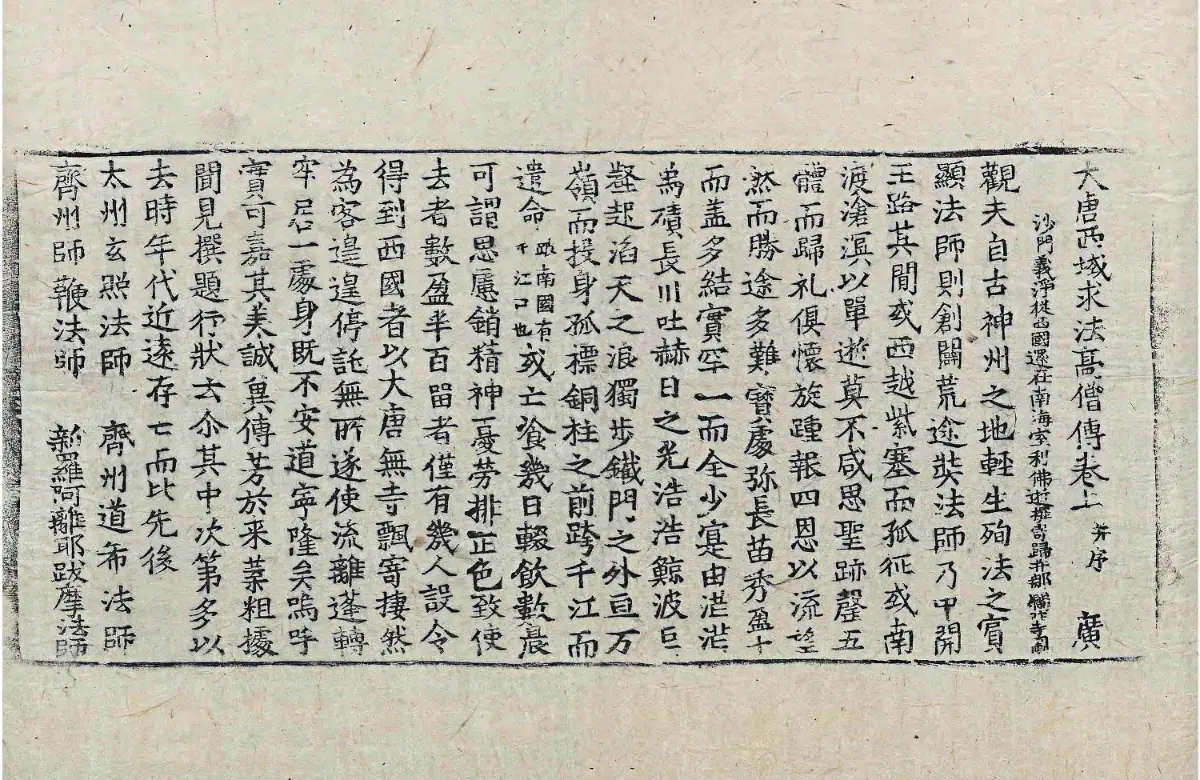 大唐西域求法髙僧傳卷上 并序 廣
沙門義淨從西國還在南海室利佛逝撰寄歸并那爛陁寺圖
觀夫自古神州之地輕生殉法之賔
顯法師則創闢荒途奘法師乃中開
王路其間或西越紫塞而孤征或南
渡滄溟以單逝莫不咸思聖跡罄五
體而歸礼俱懷旋踵報四恩以流望
然而勝途多難寶處弥長苗秀盈十
而盖多結實罕一而全少寔由茫茫
磧長川吐赫日之光浩浩鯨波巨
壑起滔天之浪獨步鐵門之外亘万
嶺而投身孤標銅柱之前跨千江而
遣命 跛南國有千江口也 或亡飡幾日輟飲數晨
可謂思慮銷精神憂勞排正色致使
去者數盈半百留者僅有幾人設令
得到西國者以大唐無寺飄寄棲然
為客遑遑停託無所遂使流離蓬轉
牢居一處身既不安道寧隆矣嗚呼
實可嘉其美誠冀傳芳於来葉粗據
聞見撰題行狀云尒其中次第多以
去時年代近遠存亡而比先後
太州玄照法師 齊州道希法師
齊州師鞭法師 新羅阿離耶跋摩法師